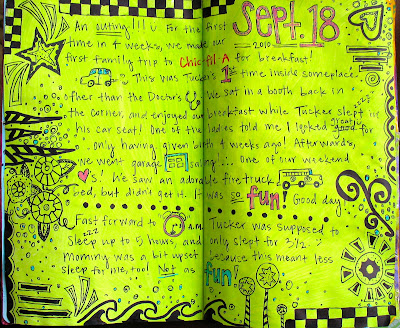 Sept. 18
2010
An outing!!! For the first
time in 4 weeks, we made our
first family trip to Chic-fil-A for breakfast!
This was Tucker's 1st time inside someplace
other than the Doctors. We sat in a booth back in
the corner, and enjoyed our breakfast while Tucker slept in
his car seat! One of the ladies told me I looked great for
only having given birth 4 weeks ago! Afterwards,
we went garage saling!... One of our weekend
s! We saw an adorable fire truck
bed, but didn't get it. It was so fun! Good day
Fast forward to A.M. Tucker was supposed to
zzz
sleep up to 5 hours, and only slept for 3 1/2.
Mommy was a bit upset because this meant less
sleep for me, too! Not as fun!